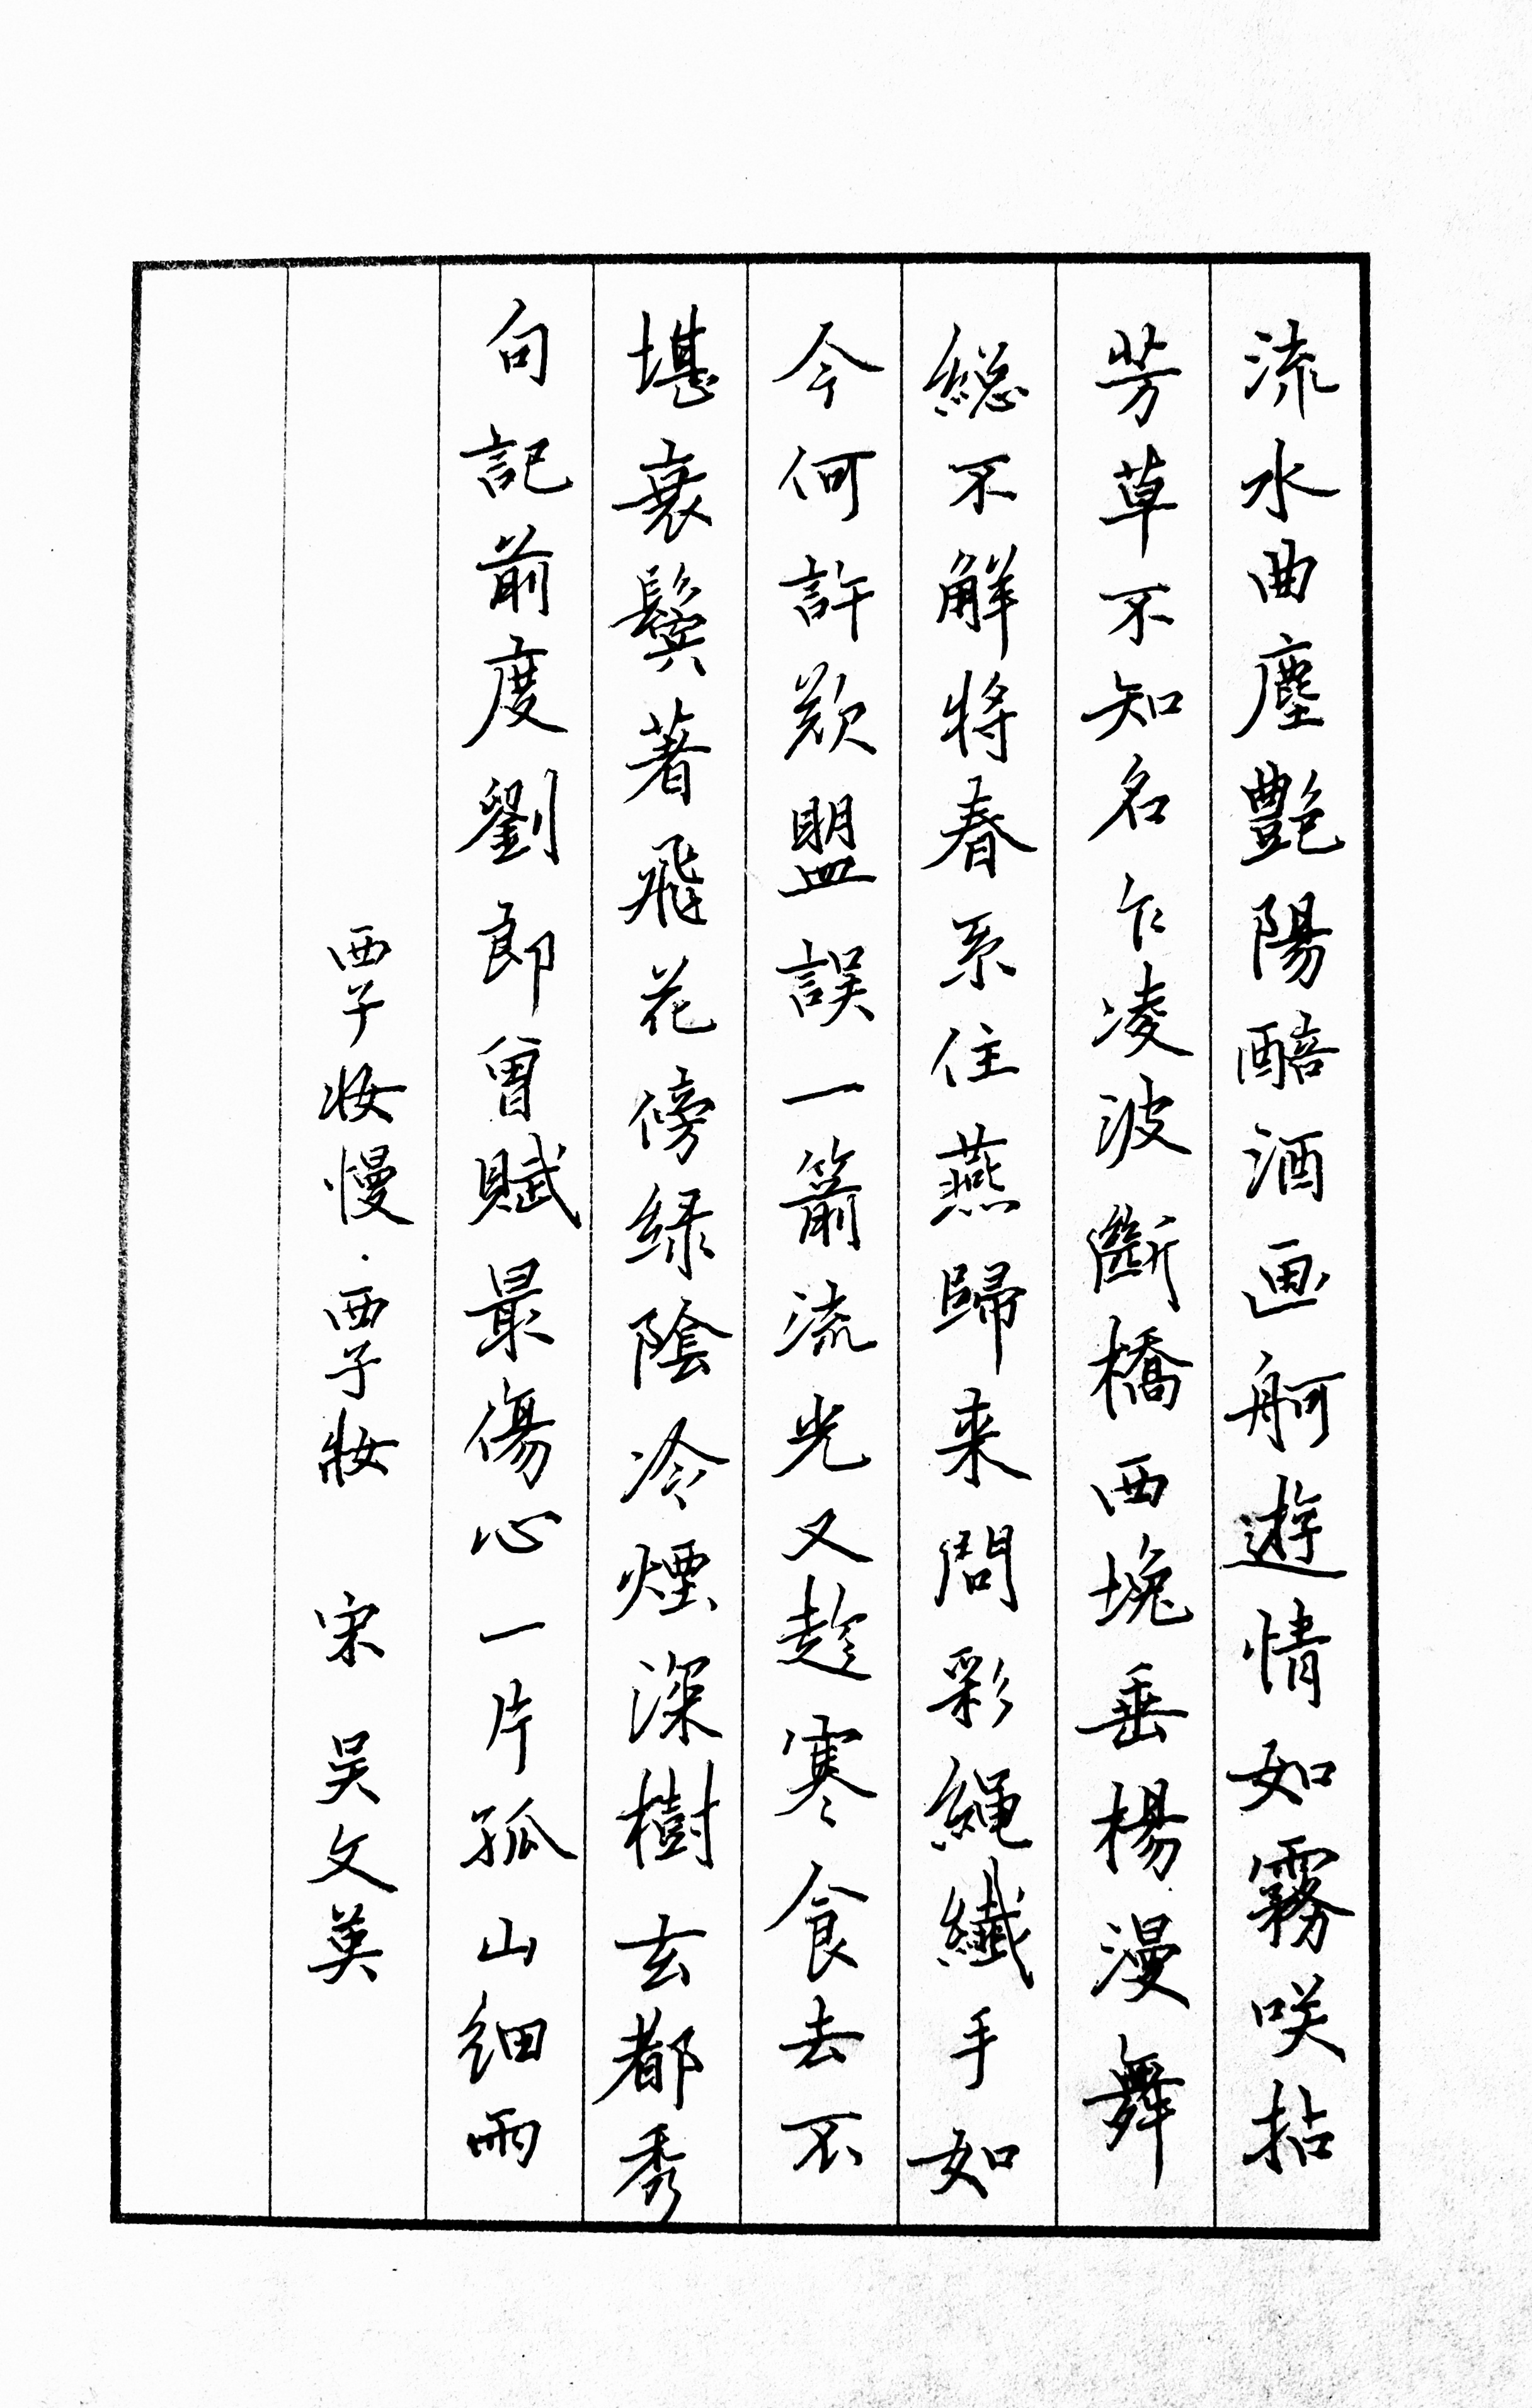 流水曲塵艷陽醅酒画舸遊情如霧咲拈
芳草不知名乍凌波斷橋西堍垂楊漫舞
総不解將春系住燕歸来問彩繩纖手如
今何許歡盟誤一箭流光又趁寒食去不
堪衰鬢著飛花傍绿陰冷煙深樹玄都秀
句記前度劉郎曾賦最傷心一片孤山细雨
西子妆慢·西子妝 宋 吴文英